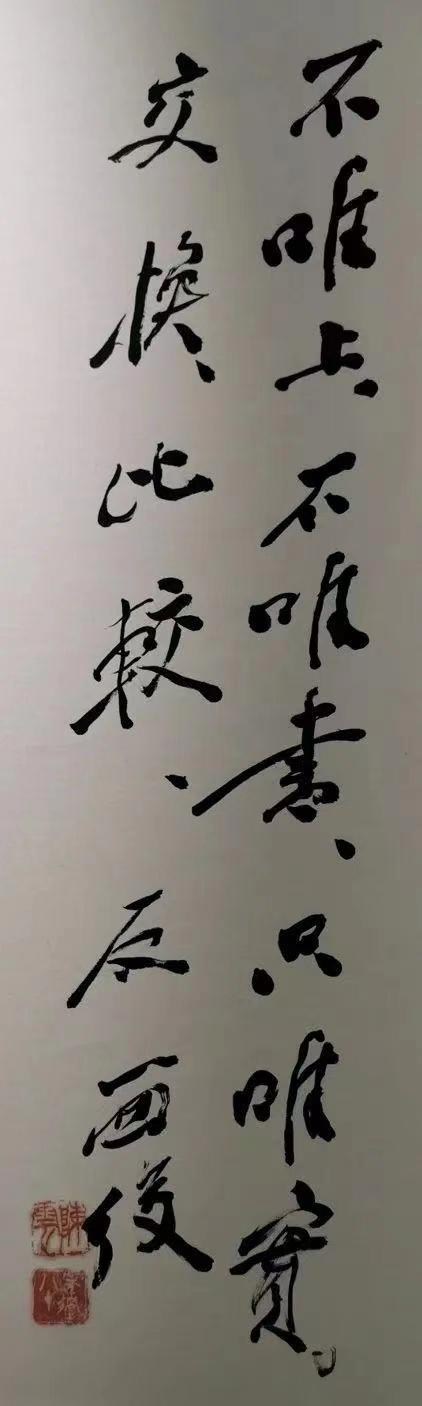 不唯上、不唯書、只唯實。
交換、比較、反覆
陳雲